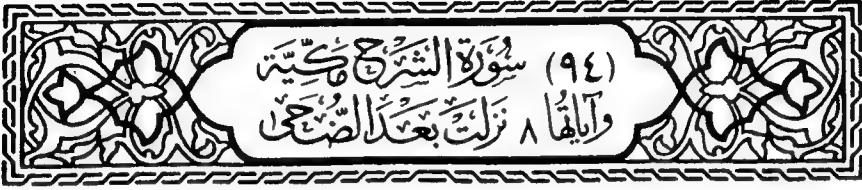 (٩٤) سُورَة الشَرح مَكيَّة
وآياتهَا ٨ نزلت بَعد الضّحى